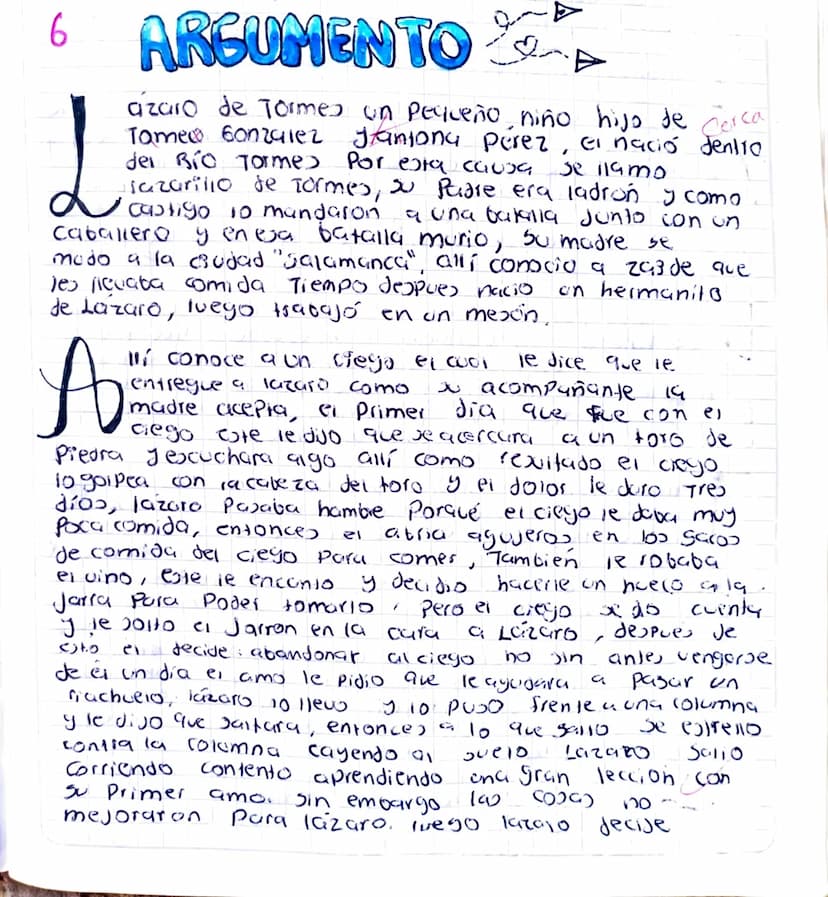 6 ARGUMENTO
Lázaro de Tormes un pequeño niño hijo de cerca
Tomeo Gonzalez y Antona Pérez, el nació dentro
del Río Tormes Por esta causa se llamo
lazarillo de Tormes, su Padre era ladrón y como
castigo lo mandaron a una batalla Junto con un
caballero y en esa batalla murio, su madre se
mudo a la ciudad "Salamanca", allí conocio a zaide que
les llevaba comida Tiempo despues nacio un hermanito
de Lázaro, luego trabajó en un mesón.
Allí conoce a un ciego el cual le dice que le
entregue a lazaro como su acompañante la
madre acepta, el Primer día que fue con el
ciego este le dijo que se acercara a un toro de
Piedra y escuchara algo allí como resultado el ciego
lo golpea con la cabeza del toro y el dolor le duro Tres
días, lázaro Pasaba hambre Porqué el ciego le daba muy
Poca comida, entonces el abria agujeros en los sacos
de comida del ciego Para comer, Tambien le robaba
el vino, este le encanto y decidio hacerle un hueco a la
Jarra Para Poder tomarlo, Pero el ciego se dio cuenta
y le solto el Jarron en la cara a Lázaro, despues de
esto el decide abandonar al ciego no sin antes vengarse
de él un dia el amo le Pidio que le ayudara a Pasar un
riachuelo, lázaro lo llevo y lo Puso frente a una columna
y le dijo que saltara, entonces a lo que salto se estrello
contra la columna cayendo al suelo Lazaro salio
corriendo contento aprendiendo una gran leccion con
su Primer amo. sin embargo las cosas no
mejoraron Para lázaro. luego lazaro decide